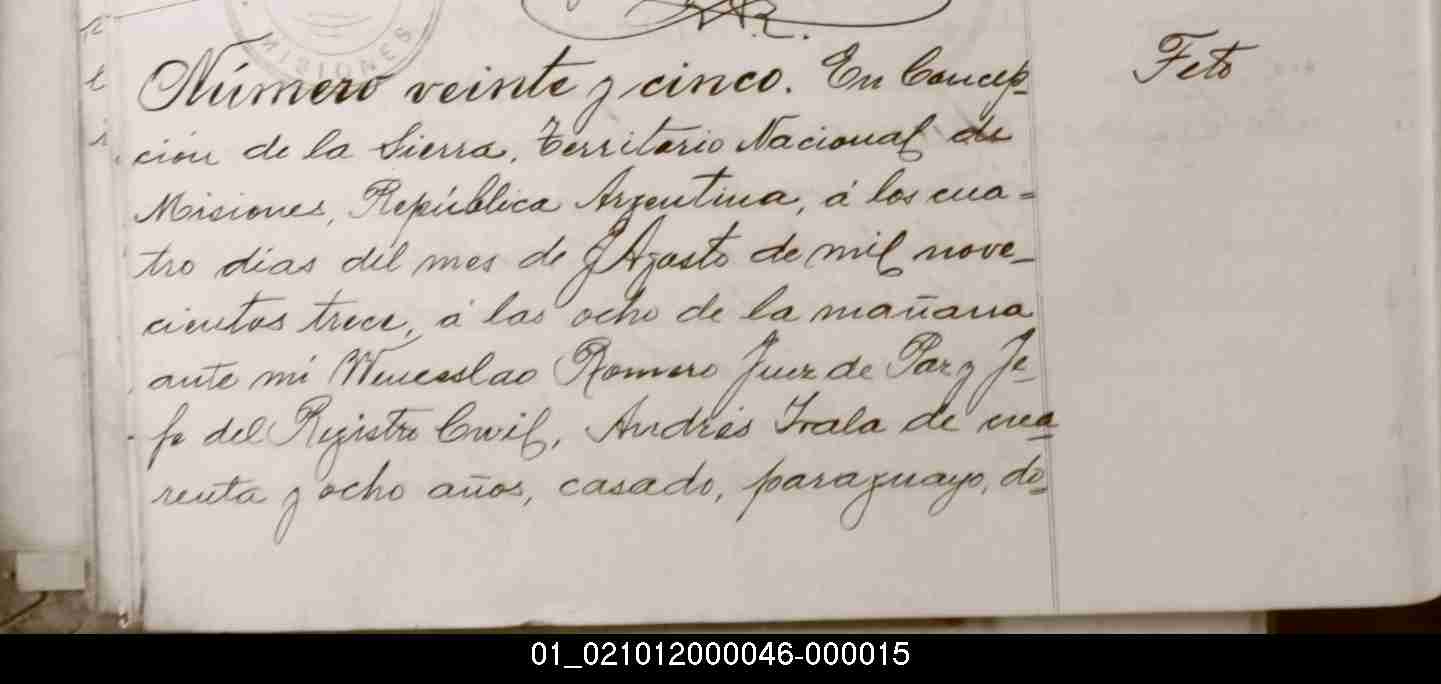 MISIONES
Número veinte y cinco. En Concep-
Feto
ción de la Sierra, Territorio Nacional de
Misiones, República Argentina, á los cua=
tro dias del mes de Agosto de mil nove-
cientos trece, á las ocho de la mañana
ante mi Wenceslao Romero Juez de Paz y Je-
fe del Registro Civil, Andrés Irala de cua-
renta y ocho años, casado, paraguayo, do-
01_021012000046-000015